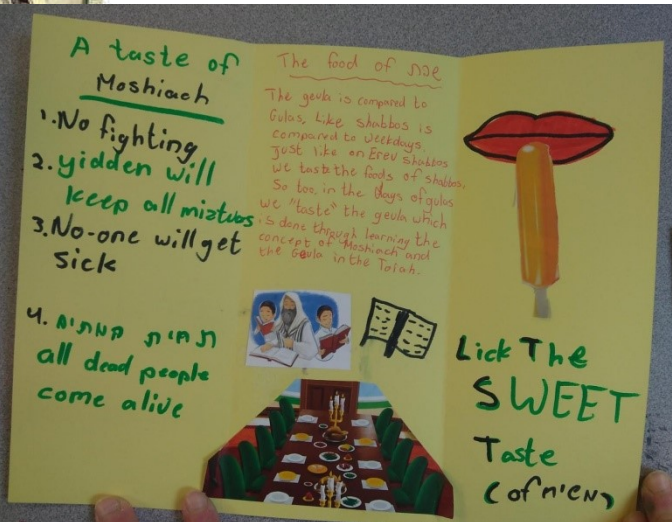 A taste of
Moshiach
1. No fighting
2. yidden will
keep all miztvos
3. No-one will get
sick
4. תחית המתים
all dead people
come alive
The food of שבת
The geula is compared to
Gulas, Like shabbos is
compared to weekdays.
Just like on Erev shabbos
we taste the foods of shabbos,
So too, in the days of gulus
we "taste" the geula which
is done through learning the
concept of Moshiach and
the Geula in the Torah.
Lick The
SWEET
Taste
(of משיח)